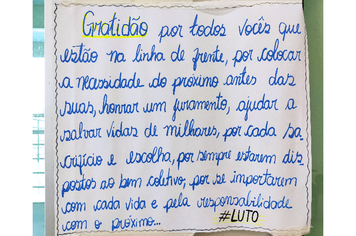 Gratidão por todos vocês que
estão na linha de frente, por colocar
a necessidade do próximo antes das
suas, honrar um juramento, ajudar a
salvar vidas de milhares, por cada sa
crifício e escolha, por sempre estarem dis
postos ao bem coletivo, por se importarem
com cada vida e pela responsabilidade
com o próximo... #LUTO